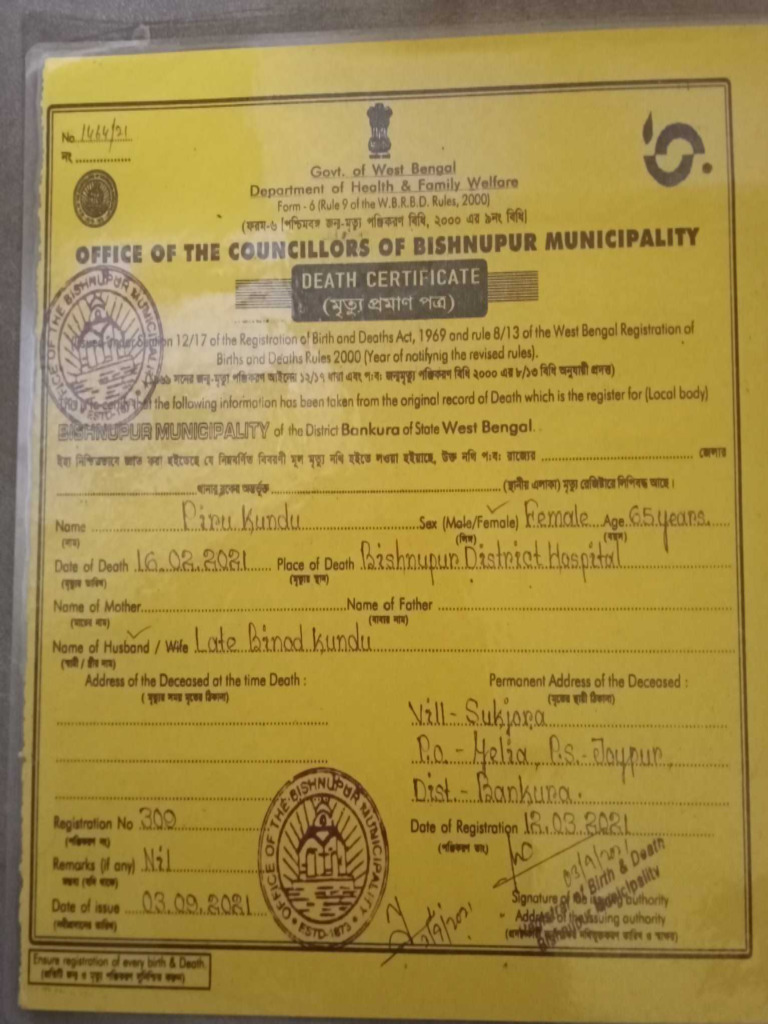 No 1464/21
নং
Govt. of West Bengal
Department of Health & Family Welfare
Form - 6 (Rule 9 of the W.B.R.B.D. Rules, 2000)
(ফরম-৬ (পশ্চিমবঙ্গ জন্ম-মৃত্যু পঞ্জিকরণ বিধি, ২০০০ এর ৯নং বিধি)
OFFICE OF THE COUNCILLORS OF BISHNUPUR MUNICIPALITY
DEATH CERTIFICATE
(মৃত্যু প্রমাণ পত্র)
12/17 of the Registration of Birth and Deaths Act, 1969 and rule 8/13 of the West Bengal Registration of
Births and Deaths Rules 2000 (Year of notifynig the revised rules).
সনের জন্ম-মৃত্যু পঞ্জিকরণ আইনের ১২/১৭ ধারা এবং প:ব: জন্মমৃত্যু পঞ্জিকরণ বিধি ২০০০ এর ৮/১৩ বিধি অনুযায়ী প্রদত্ত)
the following information has been taken from the original record of Death which is the register for (Local body)
BISHNUPUR MUNICIPALITY of the District Bankura of State West Bengal.
ইহা নিশ্চিতভাবে জ্ঞাত করা হইতেছে যে নিম্নবর্ণিত বিবরণী মূল মৃত্যু নথি হইতে লওয়া হইয়াছে, উক্ত নথি প:ব: রাজ্যের জেলার
থানার ব্লকের অন্তর্ভূক্ত (স্থানীয় এলাকা) মৃত্যু রেজিষ্টারে লিপিবদ্ধ আছে।
Name Piru Kundu Sex (Male/Female) Female Age 65 years.
(নাম) (লিঙ্গ) (বয়স)
Date of Death 16.02.2021 Place of Death Bishnupur District Hospital
(মৃত্যুর তারিখ) (মৃত্যুর স্থান)
Name of Mother Name of Father
(মাতার নাম) (বাবার নাম)
Name of Husband / Wife Late Binod Kundu
(স্বামী / স্ত্রীর নাম)
Address of the Deceased at the time Death : Permanent Address of the Deceased :
(মৃত্যুর সময় মৃতের ঠিকানা) (মৃতের স্থায়ী ঠিকানা)
Vill- Sukjora
P.o. - Yelia, P.s.- Joypur,
Dist.- Bankura.
Registration No 309 Date of Registration 12.03.2021
(পঞ্জিকরণ নং) (পঞ্জিকরণ তাং)
Remarks (if any) Nil
মন্তব্য (যদি থাকে)
03/9/2021
Signature of the issuing authority
Date of issue 03.09.2021
Address of the issuing authority
Registrar of Birth & Death
Bishnupur Municipality
OFFICE OF THE BISHNUPUR MUNICIPALITY
ESTD-1873
Ensure registration of every birth & Death.
(প্রতিটি জন্ম ও মৃত্যু পঞ্জিকরণ সুনিশ্চিত করুন)